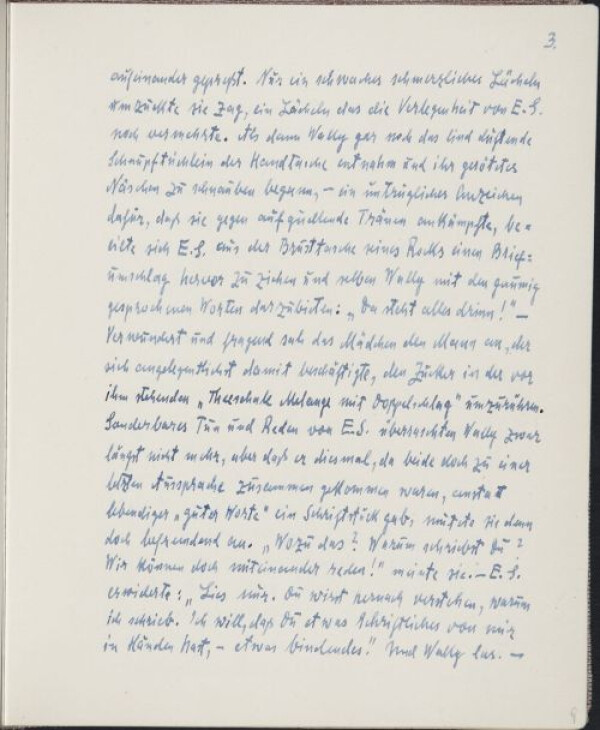 3.
aufeinander gepreßt. Nur ein schwaches schmerzliches Lächeln
umzuckte sie zag, ein Lächeln das die Verlegenheit von E.S.
noch vermehrte. Als dann Wally gar noch das lind duftende
Schnupftüchlein der Handtasche entnahm und ihr gerötetes
Näschen zu schnauben begann, – ein untrügliches Anzeichen
dafür, daß sie gegen aufquellende Tränen ankämpfte, be=
eilte sich E.S. aus der Brusttasche seines Rocks einen Brief=
umschlag hervor zu ziehen und selben Wally mit den
gesprochenen Worten darzubieten: „Da steht alles drinn!“ –
Verwundert und fragend sah das Mädchen den Mann an, der
sich angelegentlichst damit beschäftigte, den Zucker in der vor
ihm stehenden „Theeschale Melange mit Doppelschlag“ umzurühren.
Sonderbares Tun und Reden von E.S. überraschten Wally zwar
längst nicht mehr, aber daß er diesmal, da beide doch zu einer
letzten Aussprache zusammen gekommen waren, anstatt
lebendiger „guter Worte“ ein Schriftstück gab, mutete sie denn
doch befremdend an. „Wozu das? Warum schreibst Du?
Wir können doch miteinander reden!“ meinte sie. – E.S.
erwiderte: „Lies nur. Du wirst hernach verstehen, warum
ich schrieb. Ich will, daß Du etwas schriftliches von mir
in Händen hast, – etwas bindendes.“ Und Wally las. –